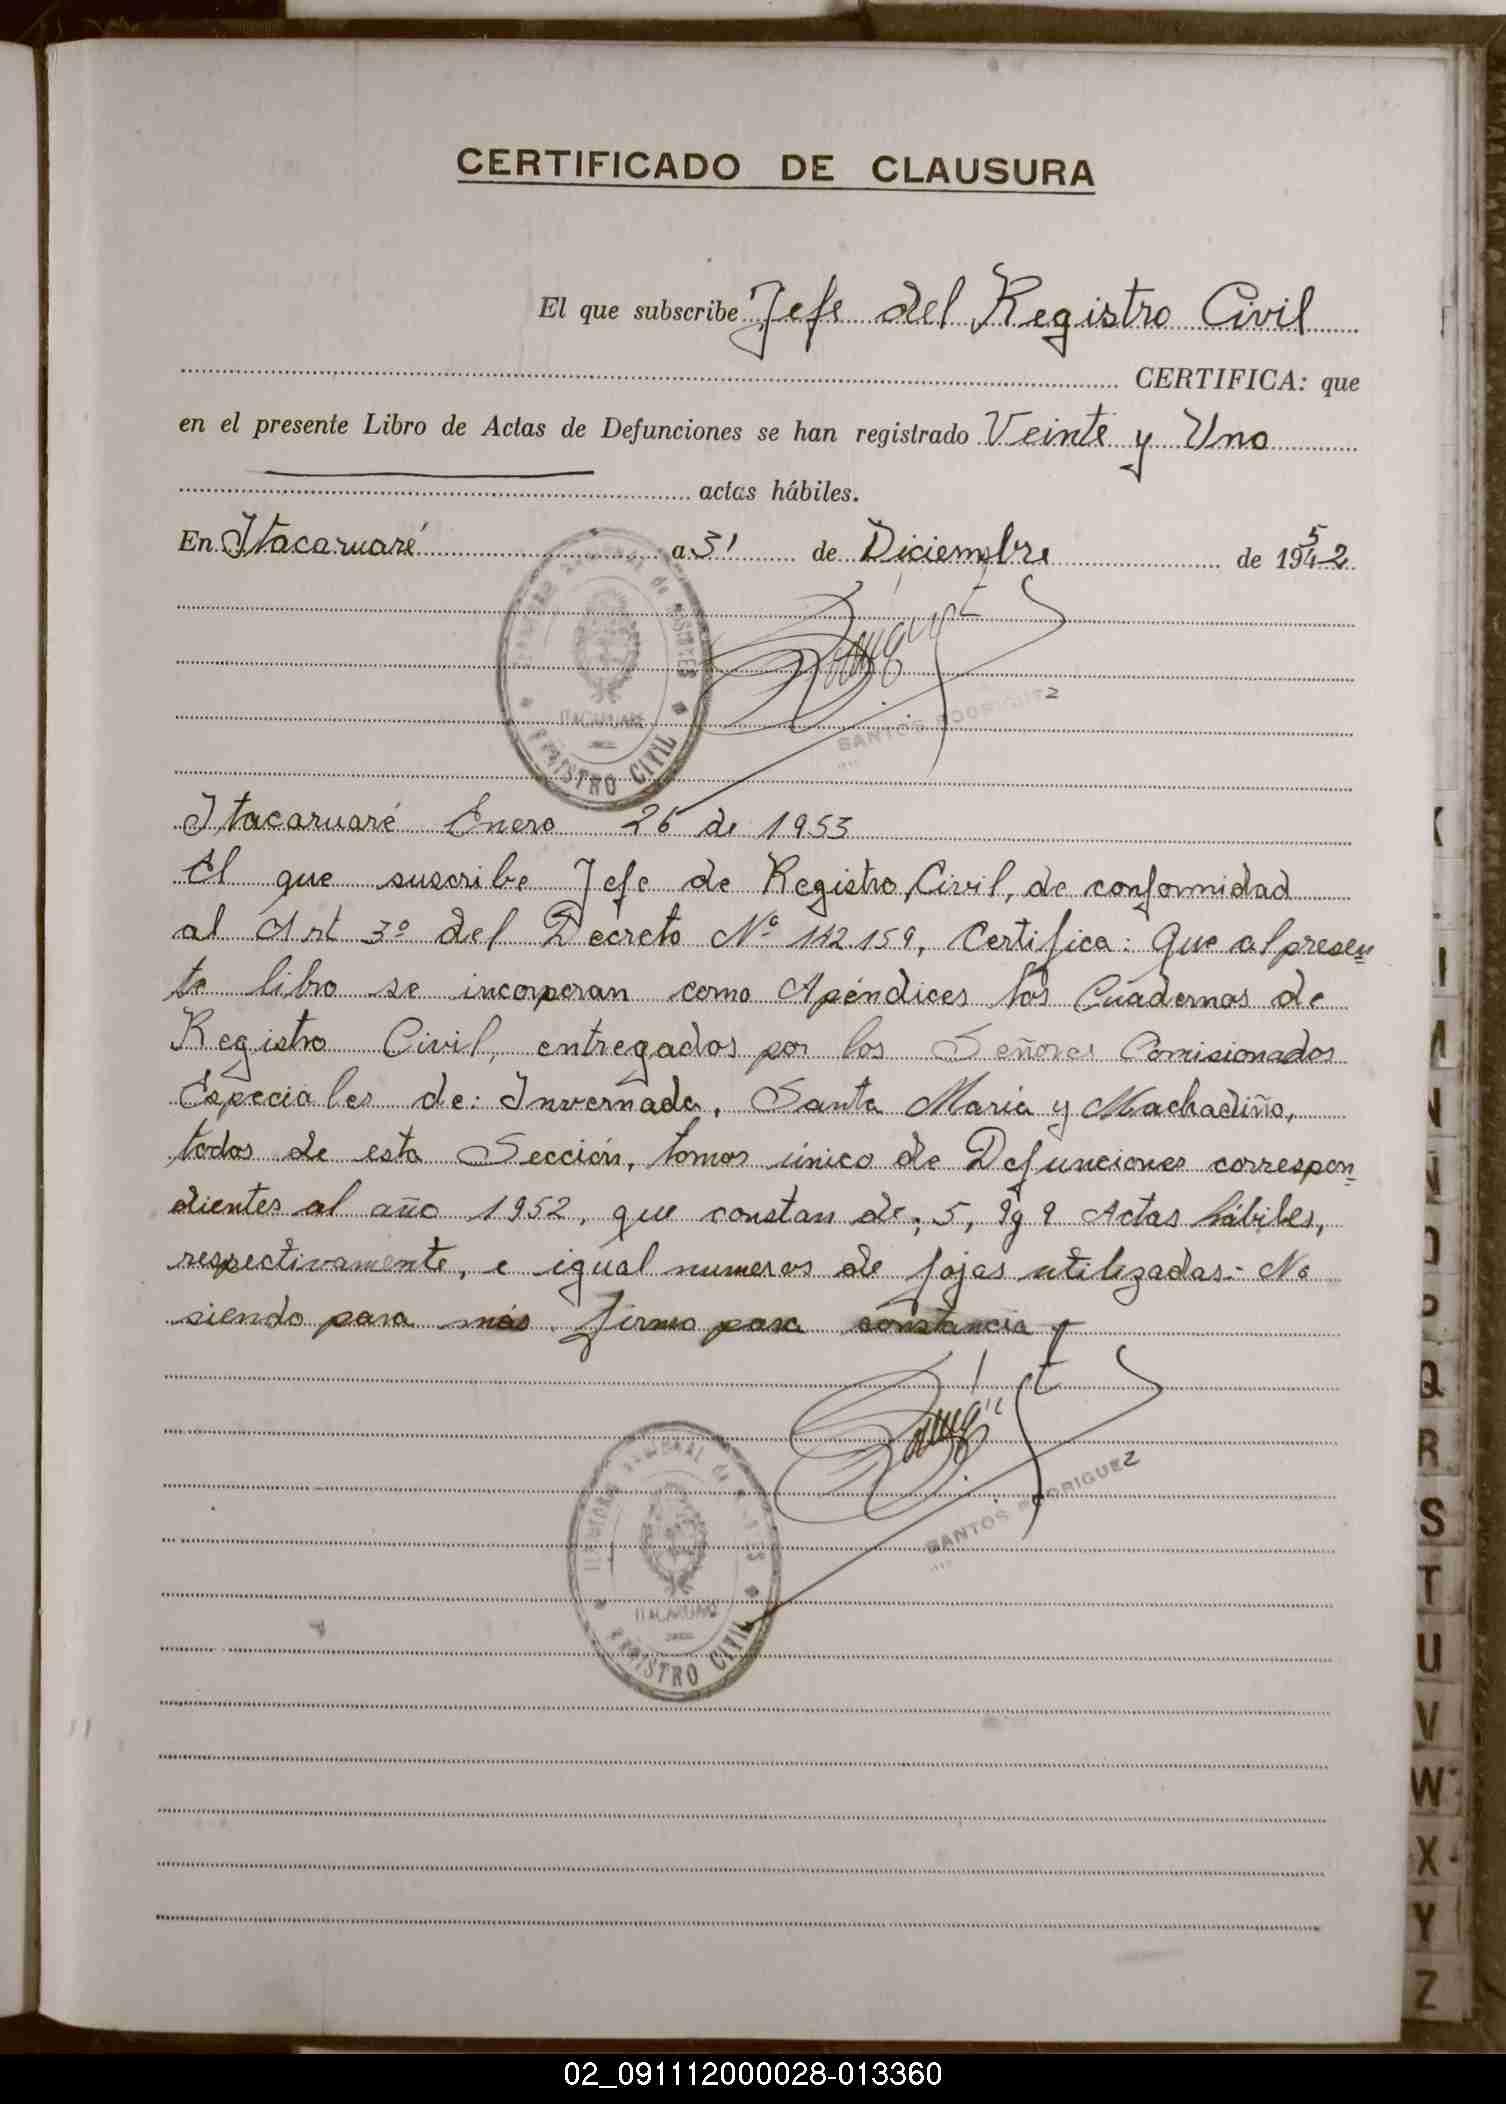 CERTIFICADO DE CLAUSURA
El que subscribe Jefe del Registro Civil
CERTIFICA: que
en el presente Libro de Actas de Defunciones se han registrado Veinte y Uno
actas hábiles.
En Itacaruaré a 31 de Diciembre de 1952
ITACARUARE
REGISTRO CIVIL
SANTOS RODRIGUEZ
Itacaruaré Enero 26 de 1953
El que suscribe Jefe de Registro Civil, de conformidad
al Art 3º del Decreto Nº 142.159, Certifica: Que al presen-
te libro se incorporan como Apéndices los Cuadernos de
Registro Civil, entregados por los Señores Comisionados
Especiales de: Invernada, Santa Maria y Machadiño,
todos de esta Sección, tomos único de Defunciones correspon-
dientes al año 1952, que constan de; 5, 9 y 9 Actas hábiles,
respectivamente, e igual numeros de fojas utilizadas.- No
siendo para más firmo para constancia
SANTOS RODRIGUEZ
ITACARUARE
REGISTRO CIVIL
N
Ñ
O
P
Q
R
S
T
U
V
W
X
Y
Z
02_091112000028-013360